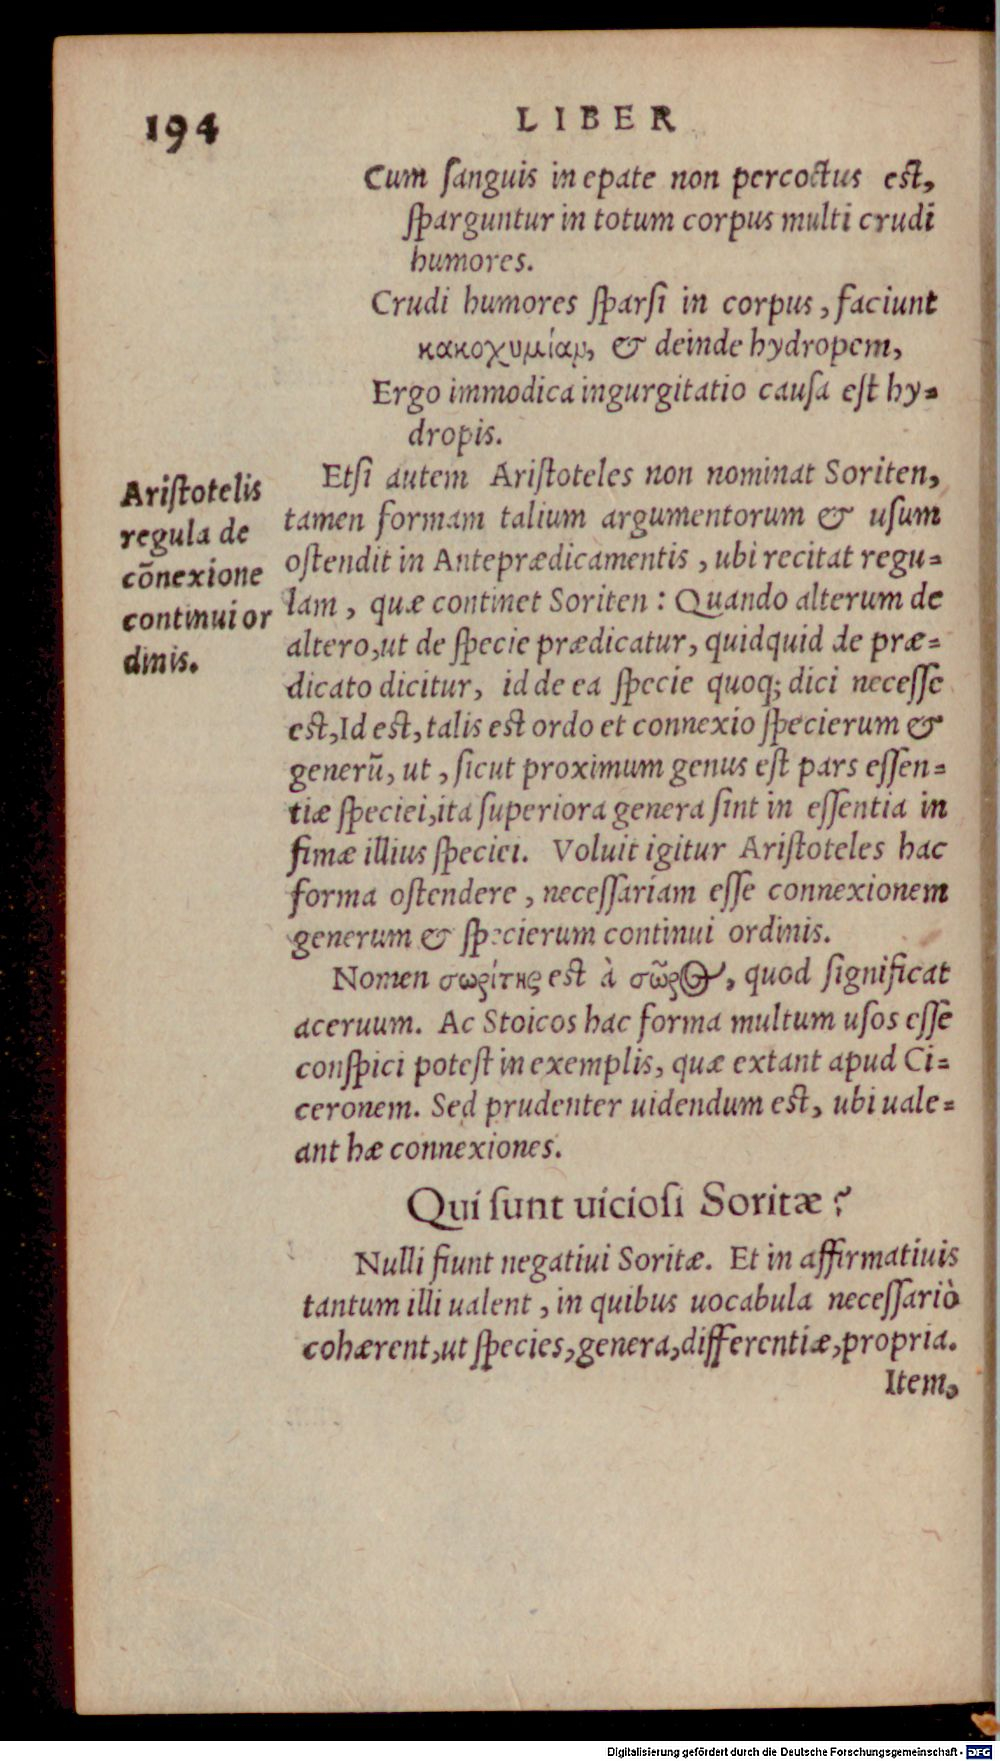 194
LIBER
Cum ſanguis in epate non percoctus est,
ſparguntur in totum corpus multi crudi
humores.
Crudi humores ſparſi in corpus, faciunt
κακοχυμίαν, & deinde hydropem,
Ergo immodica ingurgitatio cauſa eſt hy=
dropis.
Etſi autem Ariſtoteles non nominat Soriten,
tamen formam talium argumentorum & uſum
oſtendit in Anteprædicamentis, ubi recitat regu=
lam, quæ continet Soriten: Quando alterum de
altero, ut de ſpecie prædicatur, quidquid de præ=
dicato dicitur, id de ea ſpecie quoq; dici neceſſe
eſt, Id eſt, talis eſt ordo et connexio ſpecierum &
generū, ut, ſicut proximum genus eſt pars eſſen=
tiæ ſpeciei, ita ſuperiora genera ſint in eſſentia in
fimæ illius ſpeciei. Voluit igitur Ariſtoteles hac
forma oſtendere, neceſſariam eſſe connexionem
generum & ſpecierum continui ordinis.
Ariſtotelis
regula de
cōnexione
continui or
dinis.
Nomen σωρίτης est à σῶρος, quod ſignificat
aceruum. Ac Stoicos hac forma multum uſos eſſe
conſpici poteſt in exemplis, quæ extant apud Ci=
ceronem. Sed prudenter uidendum eſt, ubi uale=
ant hæ connexiones.
Qui ſunt uicioſi Soritæ?
Nulli fiunt negatiui Soritæ. Et in affirmatiuis
tantum illi ualent, in quibus uocabula neceſſariò
cohærent, ut ſpecies, genera, differentiæ, propria.
Item,
Digitalisierung gefördert durch die Deutsche Forschungsgemeinschaft - DFG